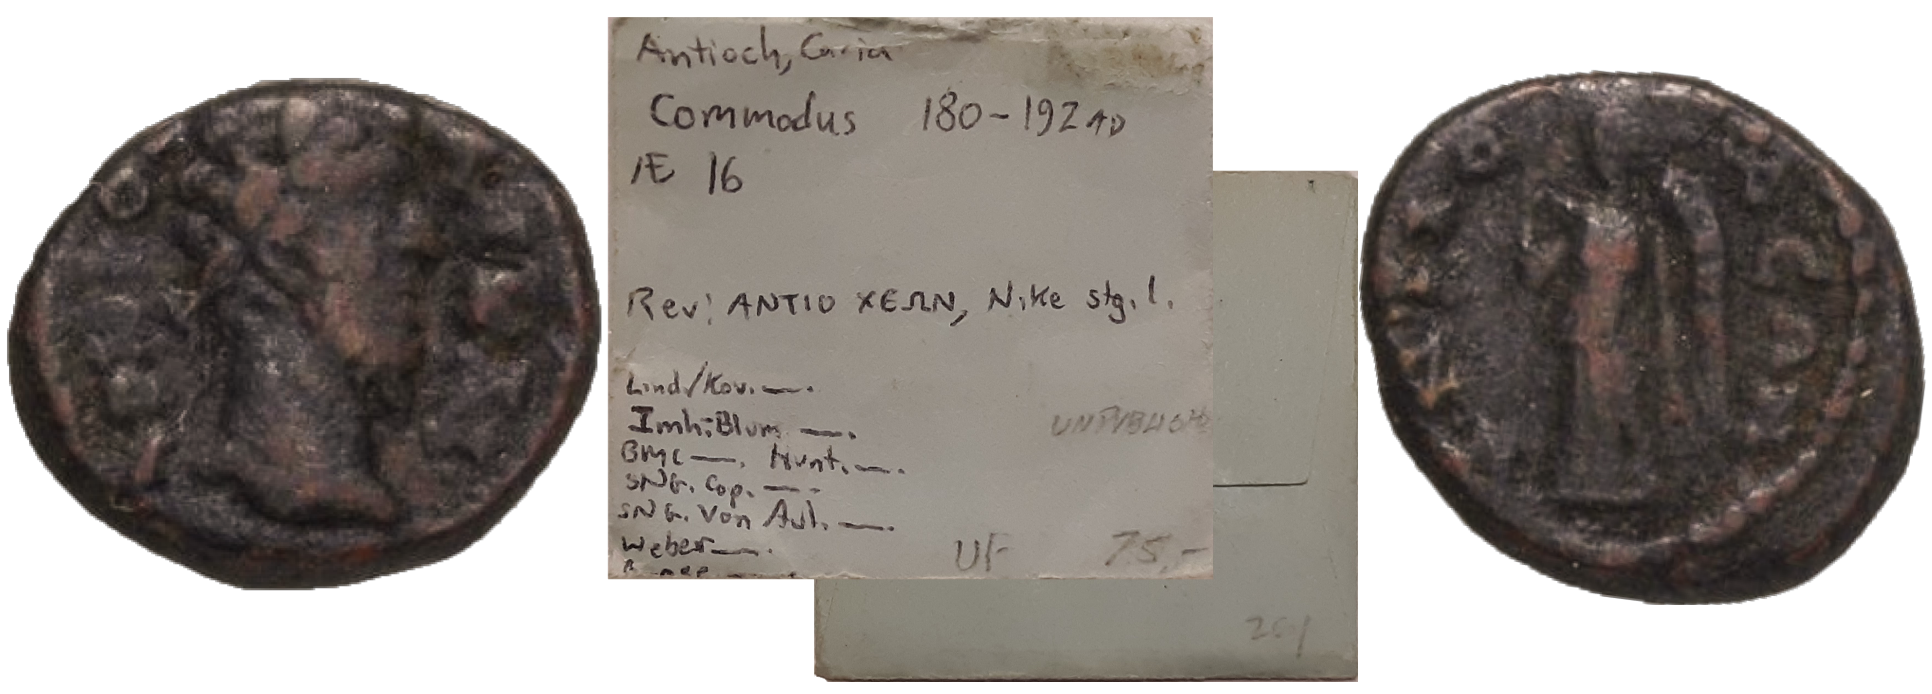 Antioch, Caria
Commodus 180-192 AD
Æ 16
Rev: ANTIO ΧΕΩΝ, Nike stg. l.
Lind/Kov. —.
Imh-Blum —.
BMC —. Hunt. —.
SNG. Cop. —.
SNG. Von Aul. —.
Weber —.
VF 75,-